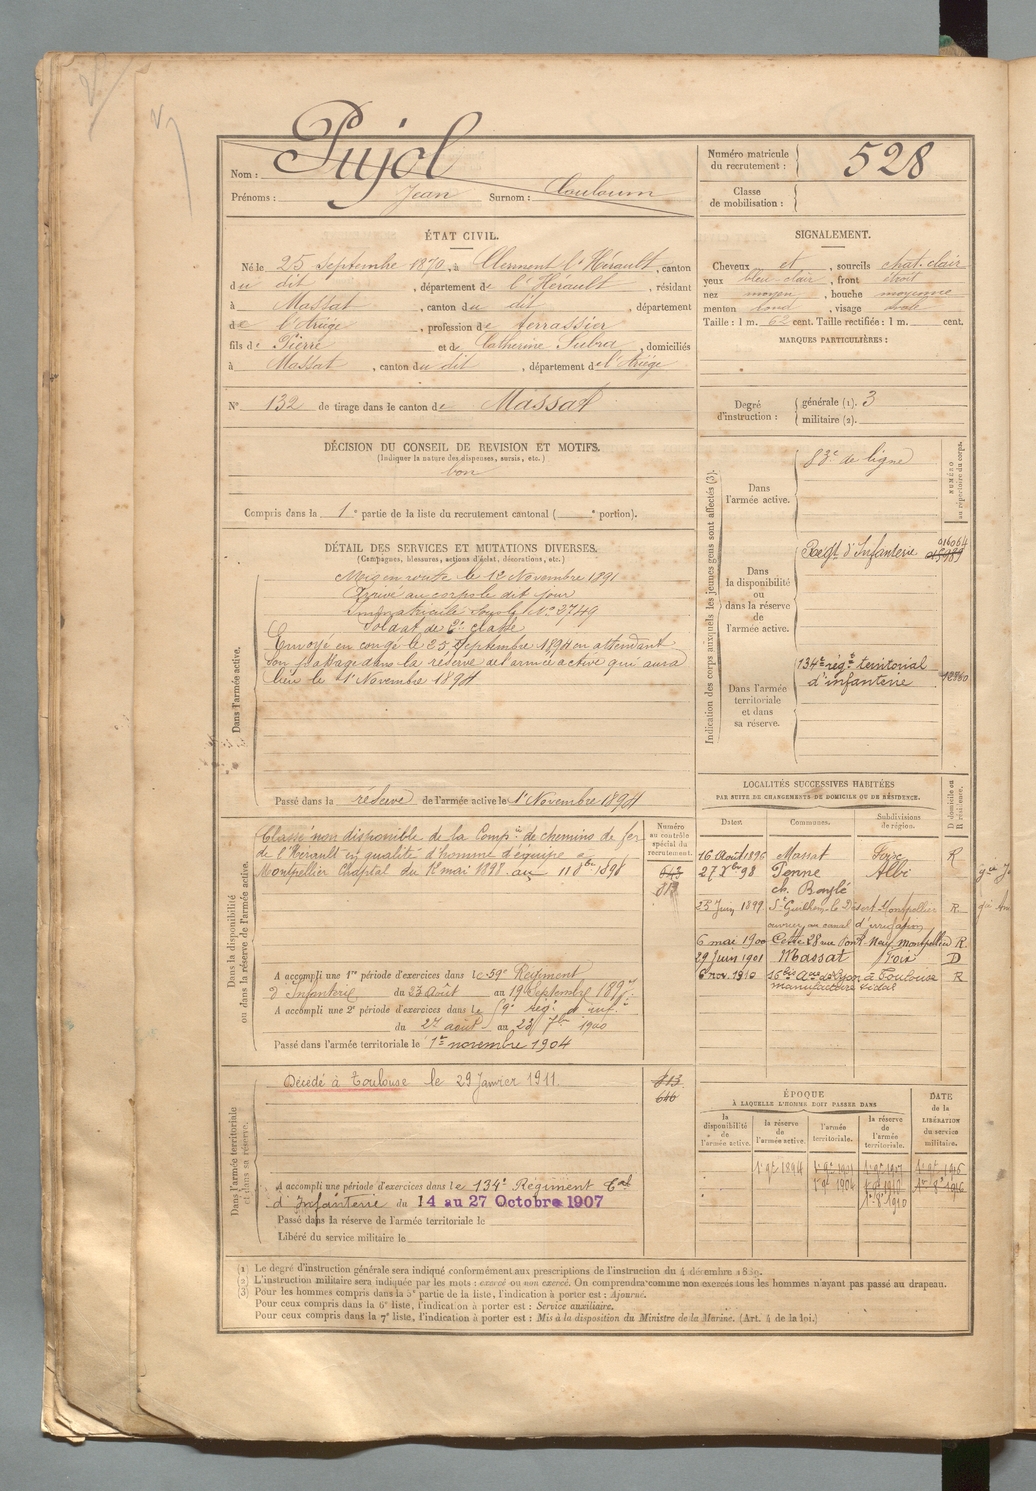 Nom : Pujol
Prénoms : Jean Surnom : Couloum
Numéro matricule du recrutement : 528
Classe de mobilisation :
ÉTAT CIVIL.
Né le 25 Septembre 1870, à Clermont l'Hérault, canton
du dit, département de l'Hérault, résidant
à Massat, canton du dit, département
de l'Ariège, profession de terrassier
fils de Pierre et de Catherine Subra, domiciliés
à Massat, canton du dit, département de l'Ariège
N° 132 de tirage dans le canton de Massat
SIGNALEMENT.
Cheveux et, sourcils chat. clair
yeux bleu-clair, front étroit
nez moyen, bouche moyenne
menton rond, visage ovale
Taille : 1 m. 62 cent. Taille rectifiée : 1 m. cent.
MARQUES PARTICULIÈRES :
Degré d'instruction : générale (1). 3
militaire (2).
DÉCISION DU CONSEIL DE REVISION ET MOTIFS.
(Indiquer la nature des dispenses, sursis, etc.)
bon
Compris dans la 1e partie de la liste du recrutement cantonal ( e portion).
DÉTAIL DES SERVICES ET MUTATIONS DIVERSES.
(Campagnes, blessures, actions d'éclat, décorations, etc.)
Dans l'armée active.
Mis en route le 12 Novembre 1891
Arrivé au corps le dit jour
Immatriculé sous le N° 3749
Soldat de 2e classe
Envoyé en congé le 25 Septembre 1894 en attendant
son passage dans la réserve de l'armée active qui aura
lieu le 1 Novembre 1894
Passé dans la réserve de l'armée active le 1 Novembre 1894
Indication des corps auxquels les jeunes gens sont affectés (3).
NUMÉRO au répertoire du corps.
Dans l'armée active.
83e de ligne
Dans la disponibilité ou dans la réserve de l'armée active.
Régt d'Infanterie
Dans l'armée territoriale et dans sa réserve.
134e régt territorial
d'infanterie
Dans la disponibilité ou dans la réserve de l'armée active.
Numéro au contrôle spécial du recrutement.
Classé non disponible de la Compie de chemins de fer
de l'Hérault en qualité d'homme d'équipe à
Montpellier Chaptal du 12 mai 1898 au 11 8bre 1898
A accompli une 1re période d'exercices dans le 59e Régiment
d'Infanterie du 23 Août au 19 Septembre 1897
A accompli une 2e période d'exercices dans le 59e régt d'inf.
du 27 août au 23 7bre 1900
Passé dans l'armée territoriale le 1er novembre 1904
LOCALITÉS SUCCESSIVES HABITÉES
PAR SUITE DE CHANGEMENTS DE DOMICILE OU DE RÉSIDENCE.
Dates. Communes. Subdivisions de région. D domicile ou R résidence.
16 Août 1896 Massat Foix R
27 Xbre 98 Penne Albi
ch. Baylé
23 Juin 1899 St Guilhem-le-Désert Montpellier R
ouvrier au canal d'irrigation
6 mai 1900 Cette 28 rue Pont Neuf Montpellier R
29 Juin 1901 Massat Foix D
6 nov. 1910 16bis Aue de Lyon à Toulouse R
Dans l'armée territoriale et dans sa réserve.
Décédé à Toulouse le 29 Janvier 1911.
813
646
A accompli une période d'exercices dans le 134e Régiment Tal
d'Infanterie du 14 au 27 Octobre 1907
Passé dans la réserve de l'armée territoriale le
Libéré du service militaire le
ÉPOQUE
À LAQUELLE L'HOMME DOIT PASSER DANS
la disponibilité de l'armée active. la réserve de l'armée active. l'armée territoriale. la réserve de l'armée territoriale.
DATE de la LIBÉRATION du service militaire.
(1) Le degré d'instruction générale sera indiqué conformément aux prescriptions de l'instruction du 4 décembre 1889.
(2) L'instruction militaire sera indiquée par les mots : exercé ou non exercé. On comprendra comme non exercés tous les hommes n'ayant pas passé au drapeau.
(3) Pour les hommes compris dans la 5e partie de la liste, l'indication à porter est : Ajourné.
Pour ceux compris dans la 6e liste, l'indication à porter est : Service auxiliaire.
Pour ceux compris dans la 7e liste, l'indication à porter est : Mis à la disposition du Ministre de la Marine. (Art. 4 de la loi.)